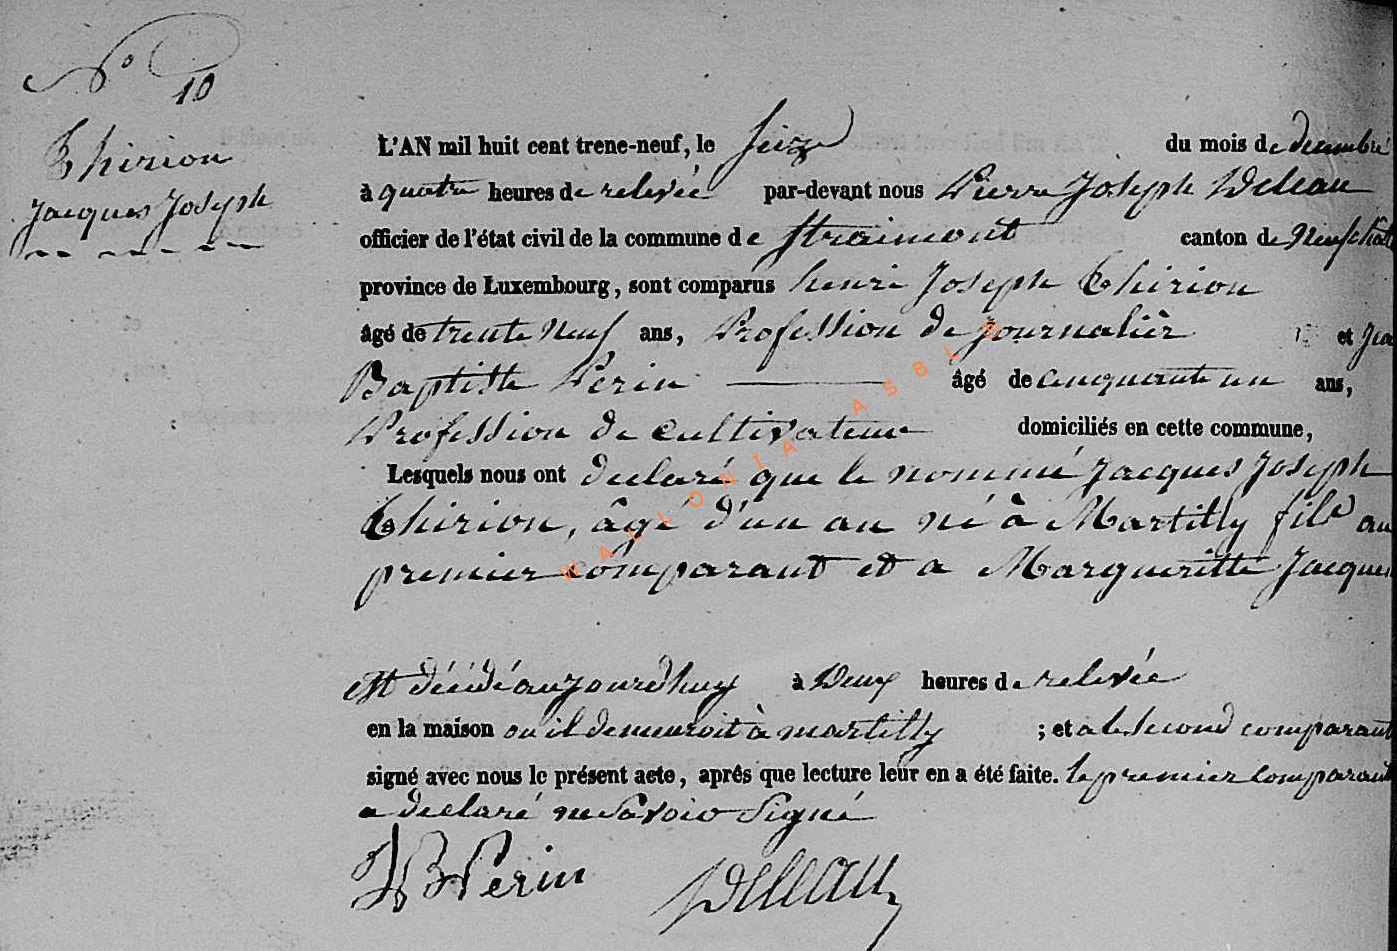 N° 10
Thirion
Jacques Joseph
L'AN mil huit cent trene-neuf, le seize du mois de decembre
à quatre heures de relevée par-devant nous Pierre Joseph Deleau
officier de l'état civil de la commune de Straimont canton de Neufchât
province de Luxembourg, sont comparus henri Joseph Thirion
âgé de trente neuf ans, Profession de journalièr et Jea
Baptiste Perin âgé de cinquante un ans,
Profession de cultivateur domiciliés en cette commune,
Lesquels nous ont declaré que le nommé Jacques Joseph
Thirion, âgé d'un an né à Martilly fils au
premier comparant et a Margueritte Jacques
est décédé aujourdhuy à Deux heures de relevée
en la maison ou il demeuroit à martilly ; et a le second comparant
signé avec nous le présent acte, aprés que lecture leur en a été faite. le premier comparant
a declaré ne Savoir Signé
JB Perin Deleau
WALLONIA ASBL